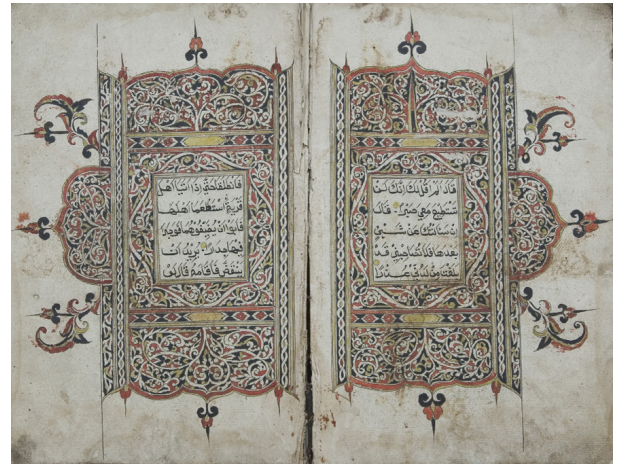 قَالَ اَلَمْ اَقُلْ لَكَ اِنَّكَ لَنْ
تَسْتَطِيعَ مَعِيَ صَبْرًا قَالَ
اِنْ سَاَلْتُكَ عَنْ شَيْءٍ
بَعْدَهَا فَلَا تُصَاحِبْنِي قَدْ
بَلَغْتَ مِنْ لَدُنِّي عُذْرًا
فَانْطَلَقَا حَتَّى اِذَا اَتَيَا اَهْلَ
قَرْيَةٍ اسْتَطْعَمَا اَهْلَهَا
فَاَبَوْا اَنْ يُضَيِّفُوهُمَا فَوَجَدَا
فِيهَا جِدَارًا يُرِيدُ اَنْ
يَنْقَضَّ فَاَقَامَهُ قَالَ لَوْ